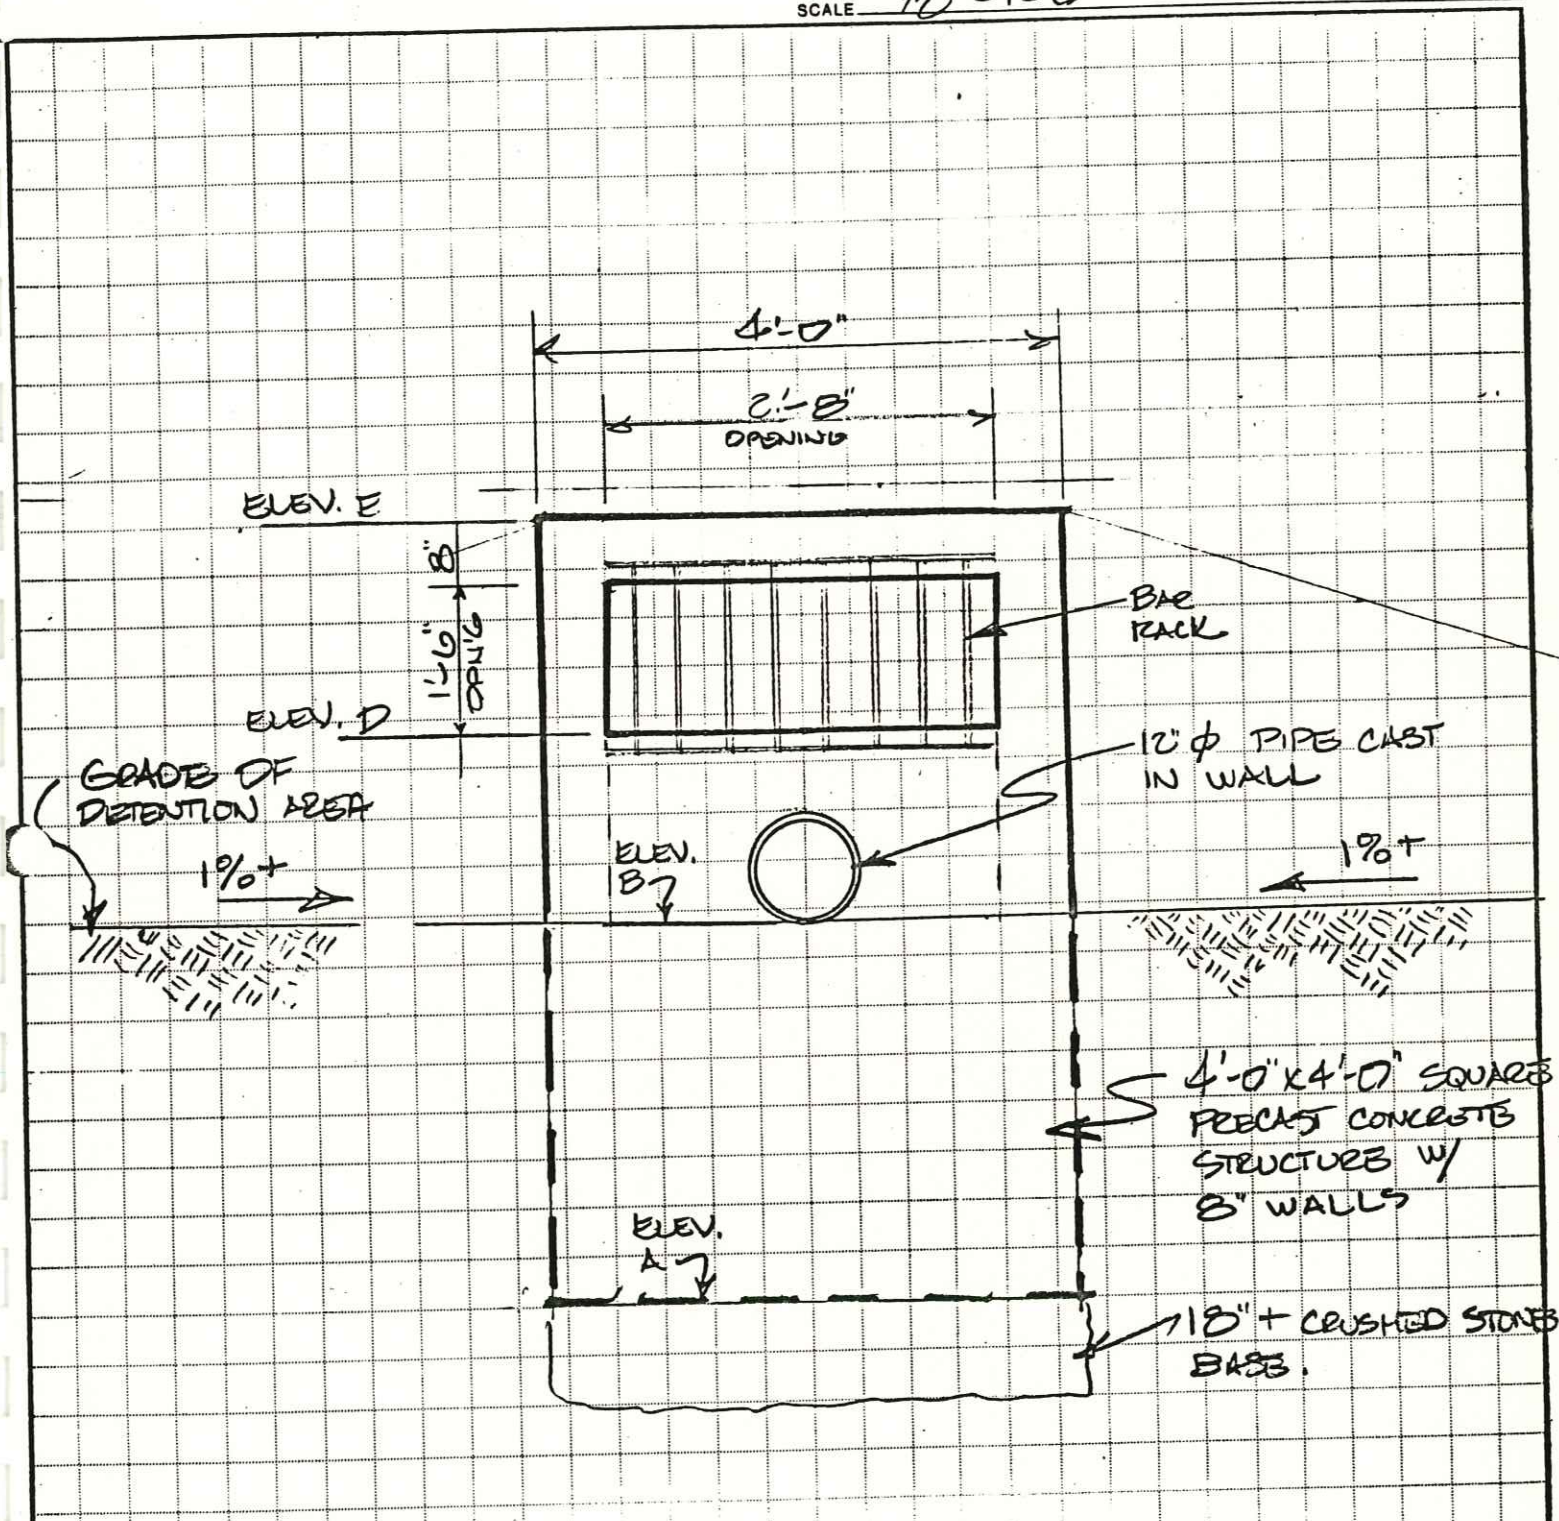 SCALE
4'-0"
2'-8"
OPENING
ELEV. E
8"
1'-6"
OPN'G
BAR
RACK
ELEV. D
12" φ PIPE CAST
IN WALL
GRADE OF
DETENTION AREA
1%+
ELEV.
B
1%+
4'-0" x 4'-0" SQUARE
PRECAST CONCRETE
STRUCTURE W/
8" WALLS
ELEV.
A
18" + CRUSHED STONE
BASE.